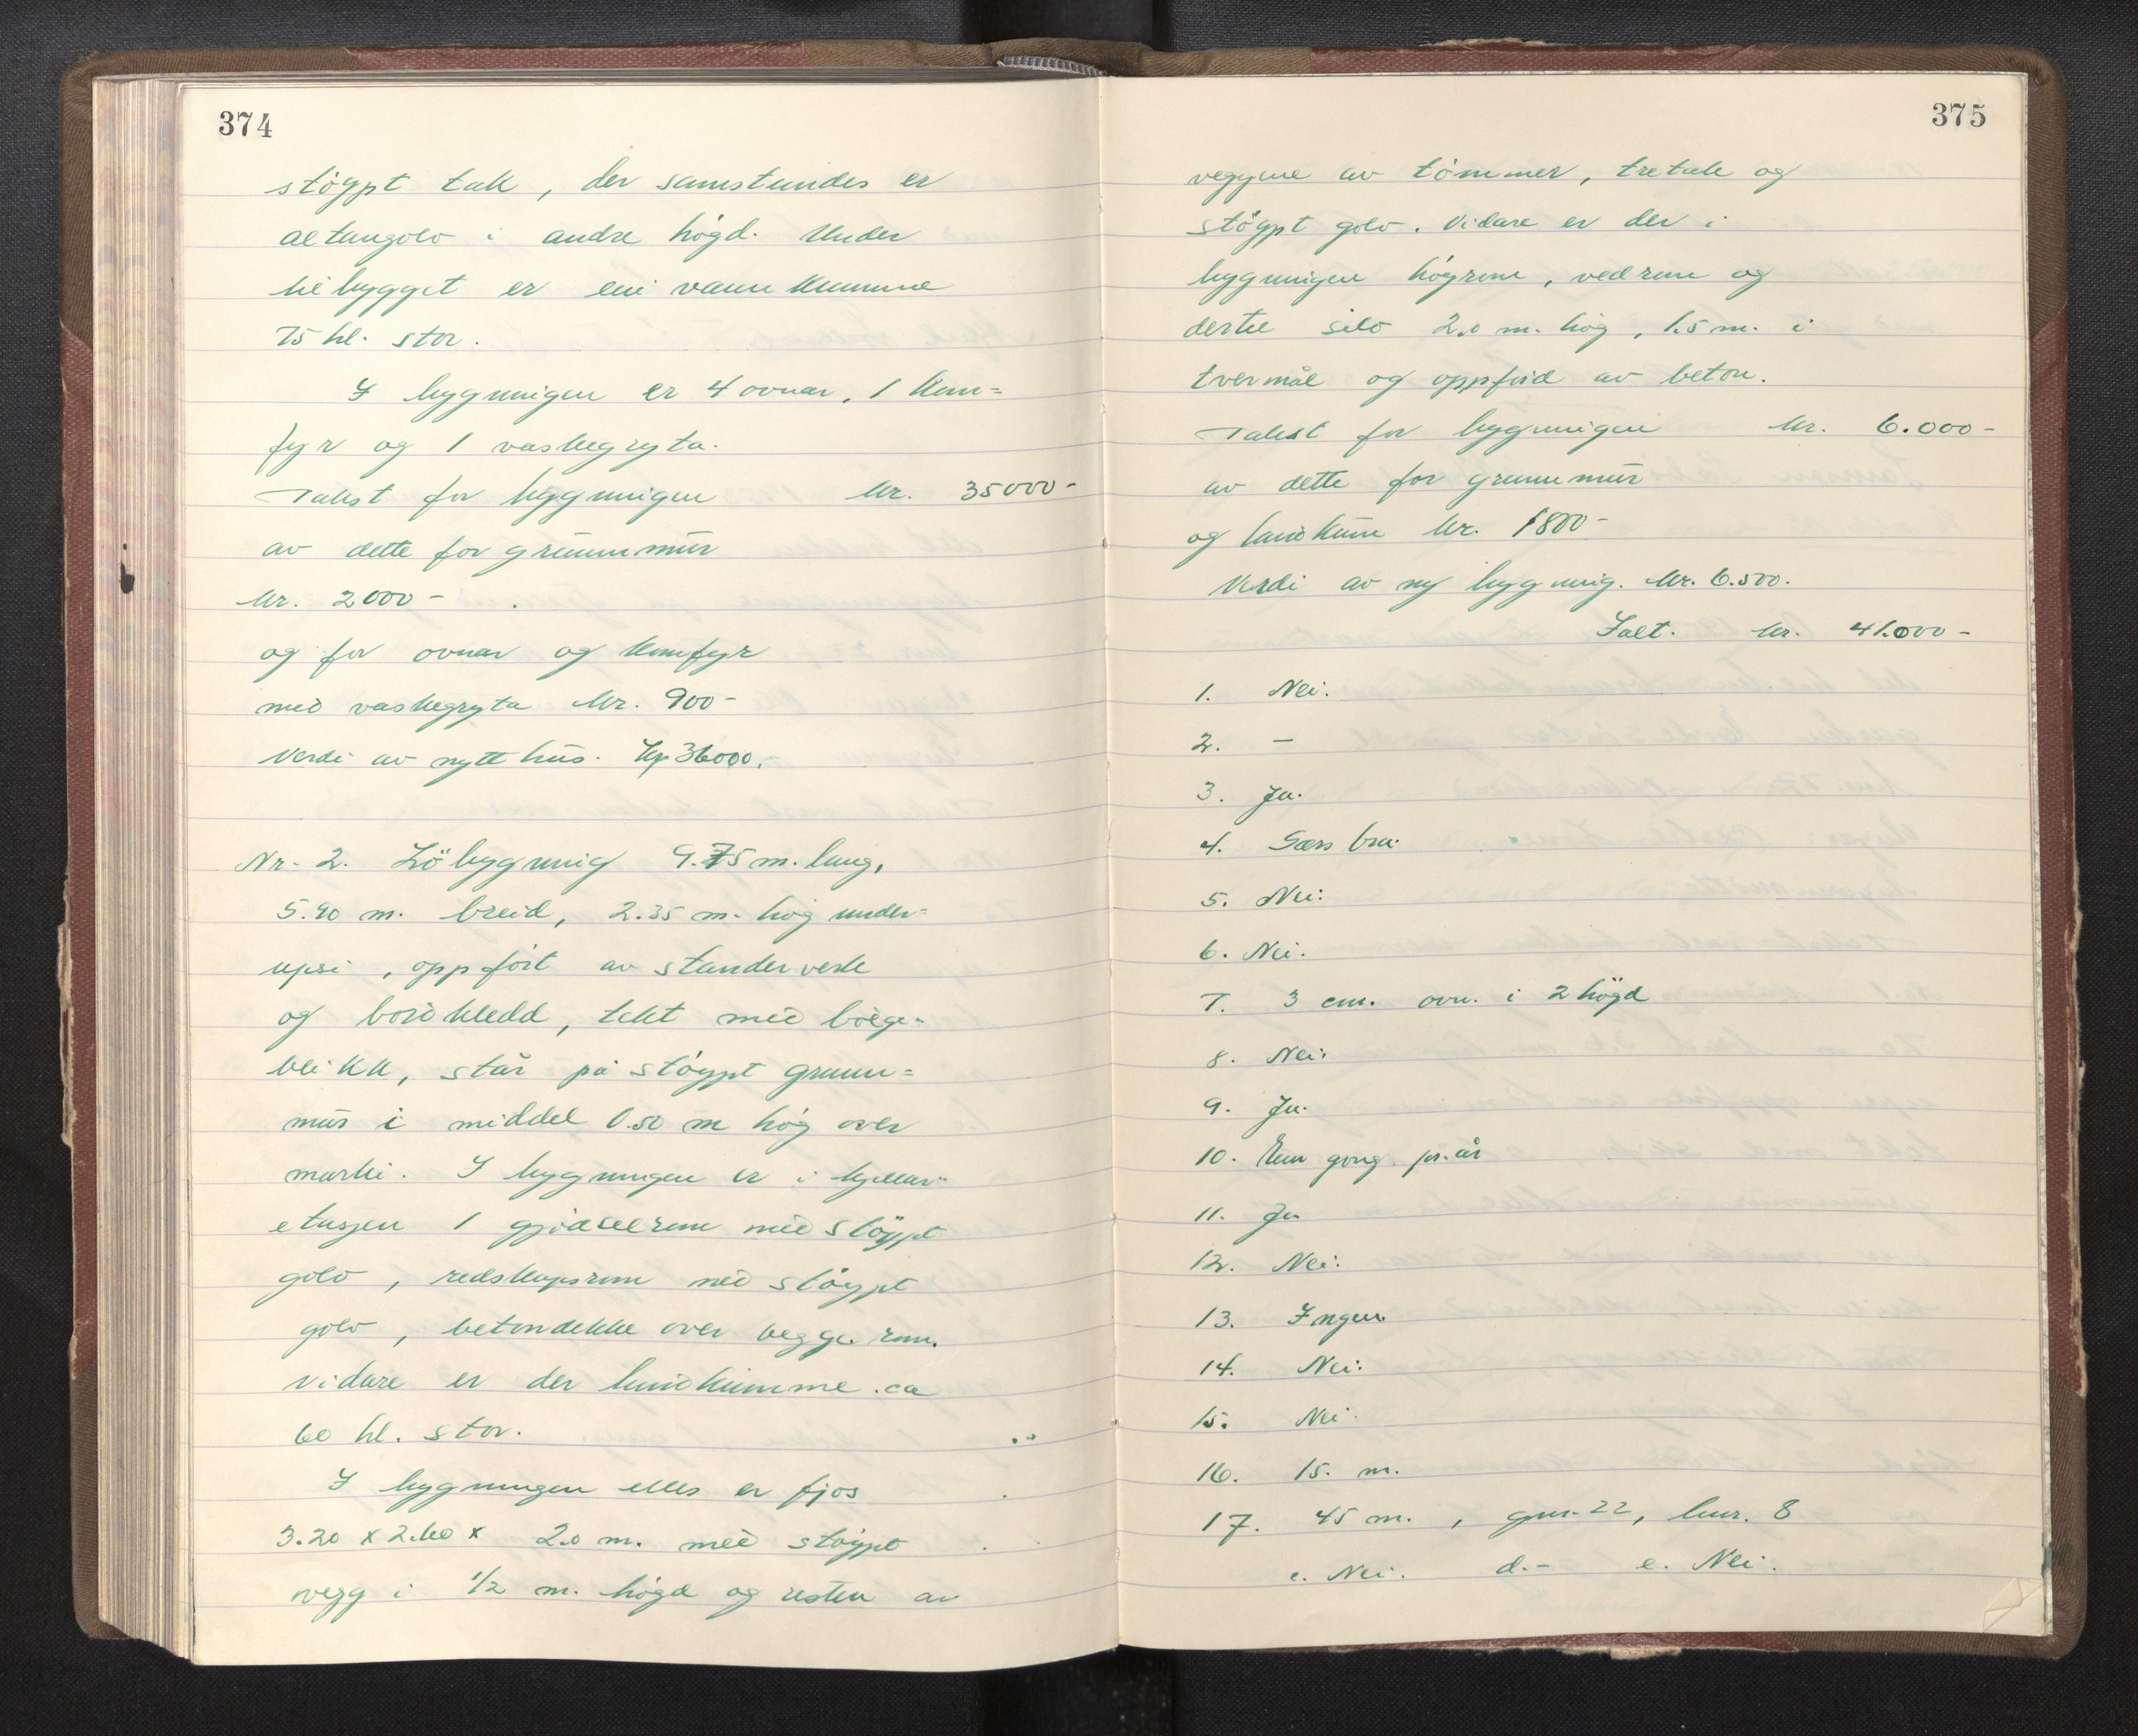 374
støypt tak, der samstundes er
altangolv i andre høgd. Under
tilbygget er ein vannkumme
75 hl. stor.
I bygningen er 4 ovnar, 1 kom=
fyr og 1 vaskegryta.
Takst for bygningen kr. 35000-
av dette for grunnmur
kr. 2000-
og for ovnar og komfyr
med vaskegryta kr. 900-
Verdi av nytt hus. Kr 36000.
Nr. 2. Löbygning 9.75 m. lang,
5.90 m. breid, 2.35 m. høg under=
upsi, oppført av standerverk
og bordkledd, tekt med bølge-
blikk, står på støypt grunn=
mur i middel 0.50 m høg over
marki. I bygningen er i kjellar-
etasjen 1 gjødselrom med støypt
golv, redskapsrom med støypt
golv, betondekke over begge rom.
Vidare er der landkumme ca
60 hl. stor.
I bygningen elles er fjos
3.20 x 2.60 x 2.0 m. med støypt
vegg i 1/2 m. høgd og resten av
375
veggene av tømmer, tretak og
støypt golv. Vidare er der i
bygningen høyrom, vedrom og
dertil silo 2.0 m. høg, 1.5 m. i
tvermål og oppførd av beton.
Takst for bygningen kr. 6.000-
av dette for grunnmur
og landkum kr. 1800-
Verdi av ny bygning. kr. 6.500.
Ialt. kr. 41.000-
1. Nei.
2. —
3. Ja.
4. Særs bra.
5. Nei.
6. Nei.
7. 3 cm. ovn. i 2 högd
8. Nei.
9. Ja.
10. Ein gong pr. år
11. Ja
12. Nei.
13. Ingen.
14. Nei.
15. Nei.
16. 15. m.
17. 45 m., gnr. 22, bnr. 8
c. Nei. d.- e. Nei.